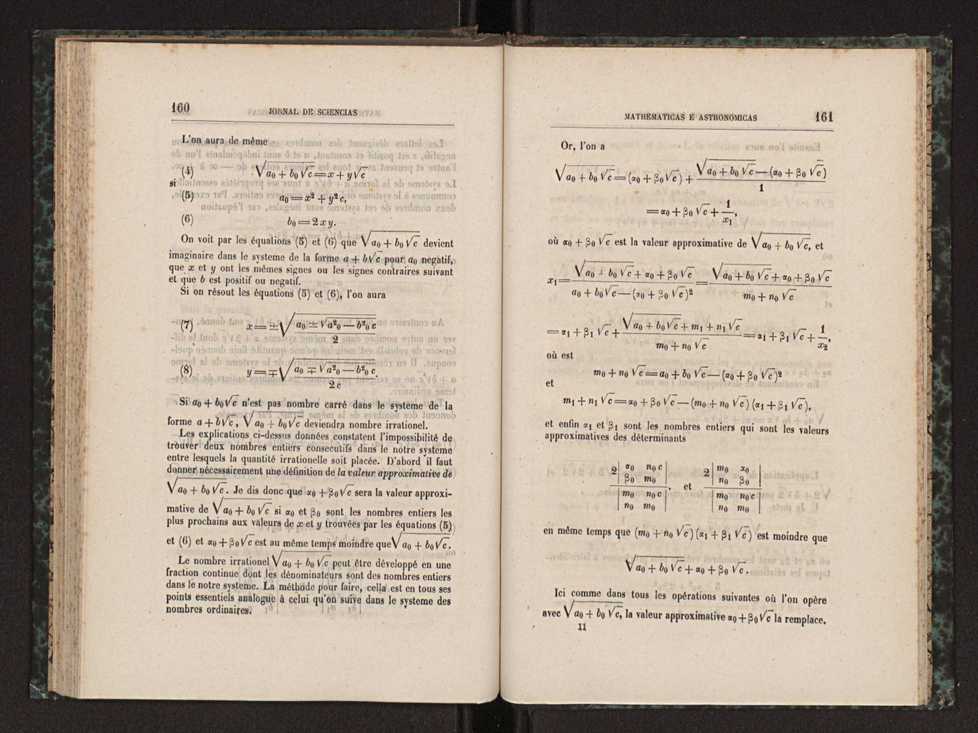 160 JORNAL DE SCIENCIAS
L'on aura de même
(4) √(a₀ + b₀√c) = x + y√c
si
(5) a₀ = x² + y²c,
(6) b₀ = 2xy.
On voit par les équations (5) et (6) que √(a₀ + b₀√c) devient
imaginaire dans le systeme de la forme a + b√c pour a₀ negatif,
que x et y ont les mêmes signes ou les signes contraires suivant
et que b est positif ou negatif.
Si on résout les équations (5) et (6), l'on aura
(7) x = ±√((a₀ ± √(a²₀ — b²₀ c))/2)
(8) y = ∓√((a₀ ∓ √(a²₀ — b²₀ c))/2c).
Si a₀ + b₀√c n'est pas nombre carré dans le systeme de la
forme a + b√c, √(a₀ + b₀√c) deviendra nombre irrationel.
Les explications ci-dessus données constatent l'impossibilité de
trouver deux nombres entiers consecutifs dans le notre systeme
entre lesquels la quantité irrationelle soit placée. D'abord il faut
donner nécessairement une définition de la valeur approximative de
√(a₀ + b₀√c). Je dis donc que α₀ + β₀√c sera la valeur approxi-
mative de √(a₀ + b₀√c) si α₀ et β₀ sont les nombres entiers les
plus prochains aux valeurs de x et y trouvées par les équations (5)
et (6) et α₀ + β₀√c est au même temps moindre que √(a₀ + b₀√c).
Le nombre irrationel √(a₀ + b₀√c) peut être développé en une
fraction continue dont les dénominateurs sont des nombres entiers
dans le notre systeme. La méthode pour faire, cella est en tous ses
points essentiels analogue à celui qu'on suive dans le systeme des
nombres ordinaires.
MATHEMATICAS E ASTRONOMICAS 161
Or, l'on a
√(a₀ + b₀√c) = (α₀ + β₀√c) + (√(a₀ + b₀√c) — (α₀ + β₀√c))/1
= α₀ + β₀√c + 1/x₁,
où α₀ + β₀√c est la valeur approximative de √(a₀ + b₀√c), et
x₁ = (√(a₀ + b₀√c) + α₀ + β₀√c)/(a₀ + b₀√c — (α₀ + β₀√c)²) = (√(a₀ + b₀√c) + α₀ + β₀√c)/(m₀ + n₀√c)
= α₁ + β₁√c + (√(a₀ + b₀√c) + m₁ + n₁√c)/(m₀ + n₀√c) = α₁ + β₁√c + 1/x₂,
où est
m₀ + n₀√c = a₀ + b₀√c — (α₀ + β₀√c)²
et
m₁ + n₁√c = α₀ + β₀√c — (m₀ + n₀√c)(α₁ + β₁√c),
et enfin α₁ et β₁ sont les nombres entiers qui sont les valeurs
approximatives des déterminants
2 |α₀ n₀c; β₀ m₀| / |m₀ n₀c; n₀ m₀|, et 2 |m₀ α₀; n₀ β₀| / |m₀ n₀c; n₀ m₀|
en même temps que (m₀ + n₀√c)(α₁ + β₁√c) est moindre que
√(a₀ + b₀√c) + α₀ + β₀√c.
Ici comme dans tous les opérations suivantes où l'on opère
avec √(a₀ + b₀√c), la valeur approximative α₀ + β₀√c la remplace.
11